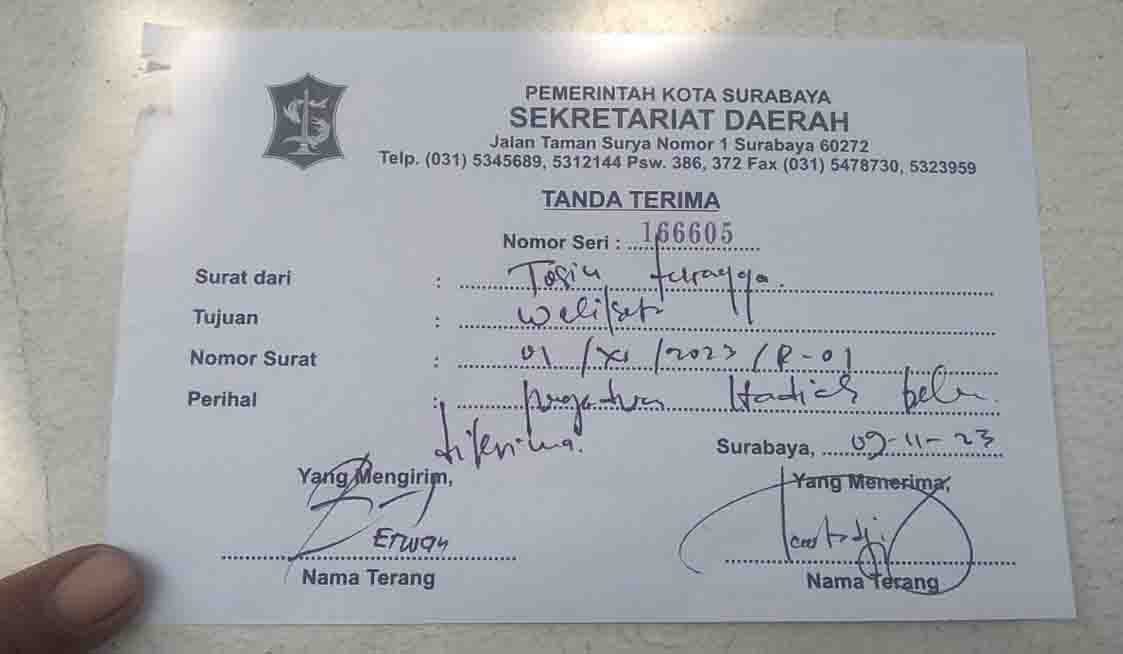 PEMERINTAH KOTA SURABAYA
SEKRETARIAT DAERAH
Jalan Taman Surya Nomor 1 Surabaya 60272
Telp. (031) 5345689, 5312144 Psw. 386, 372 Fax (031) 5478730, 5323959
TANDA TERIMA
Nomor Seri : 166605
Surat dari :
Tujuan :
Nomor Surat : 01/XI/2023/R-01
Perihal : Hadiah
diterima.
Surabaya, 09-11-23
Yang Mengirim, Yang Menerima,
Erwan
Nama Terang Nama Terang